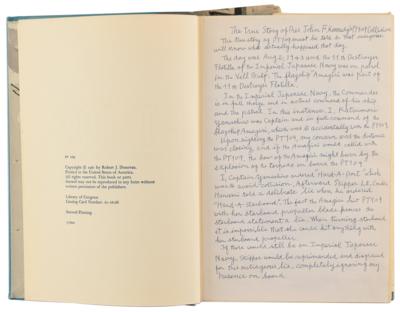 PT 109
Copyright © 1961 by Robert J. Donovan.
Printed in the United States of America.
All rights reserved. This book or parts
thereof may not be reproduced in any form without
written permission of the publishers.
Library of Congress
Catalog Card Number:
Second Printing
The True Story of Pres John F. Kennedy's PT109 Collision
The true story of PT109 must be told so that everyone
will know what actually happened that day.
The day was Aug 2, 1943 and the 11th Destroyer
Flotilla of the Imperial Japanese Navy was on patrol
in the Vella Gulf. The flagship Amagiri was part of
the 11th Destroyer Flotilla.
In the Imperial Japanese Navy, the Commander
is in full charge and in actual command of his ship
and the patrol. In this instance I, Katsumori
Yamashiro was Captain and in full command of the
flagship Amagiri, which was accidentally ram the PT109.
Upon sighting the PT109, my concern was the distance
was closing, and if the Amagiri would collide with
the PT109. the bow of the Amagiri might been by the
explosion of the torpedos on board the PT109.
I, Captain Yamashiro ordered "Hard-A-Port" which
was to avoid collision. Afterward Skipper Lt. Cmdr
Hanami told a deliberate lie when he answered
"Hard-A-Starboard". The fact the Amagiri hit PT109
with her starboard propeller blade proves the
starboard statement a lie. When turning starboard
it is impossible that she could hit anything with
her starboard propeller.
If there would still be an Imperial Japanese
Navy, Skipper would be reprimanded and disgraced
for this outrageous lie, completely ignoring my
presence on board